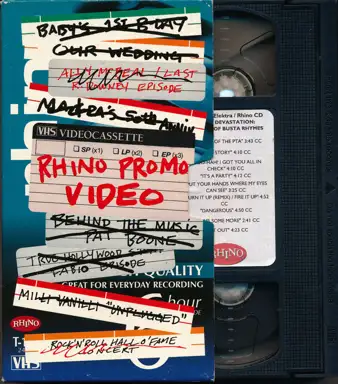 BABY'S 1ST B-DAY
OUR WEDDING
ALLY McBEAL / LAST
R. DOWNEY EPISODE
VHS VIDEOCASSETTE
SP (x1) LP (x2) EP (x3)
RHINO PROMO
VIDEO
BEHIND THE MUSIC
PAT BOONE
TRUE HOLLYWOOD
FABIO EPISODE
QUALITY
GREAT FOR EVERYDAY RECORDING
MILLI VANILLI "UNPLUGGED"
hour
RHINO
ROCK 'N ROLL HALL O' FAME
CONCERT
VHS
Elektra / Rhino CD
DEVASTATION:
OF BUSTA RHYMES
OF THE PTA" 2:45 CC
STORY" 4:10 CC
HAH! GOT YOU ALL IN
CHECK" 4:10 CC
"IT'S A PARTY" 4:12 CC
PUT YOUR HANDS WHERE MY EYES
CAN SEE" 3:25 CC
TURN IT UP (REMIX) / FIRE IT UP" 4:52
CC
"DANGEROUS" 4:50 CC
SOME MORE" 2:41 CC
OUT" 4:23 CC
RHINO